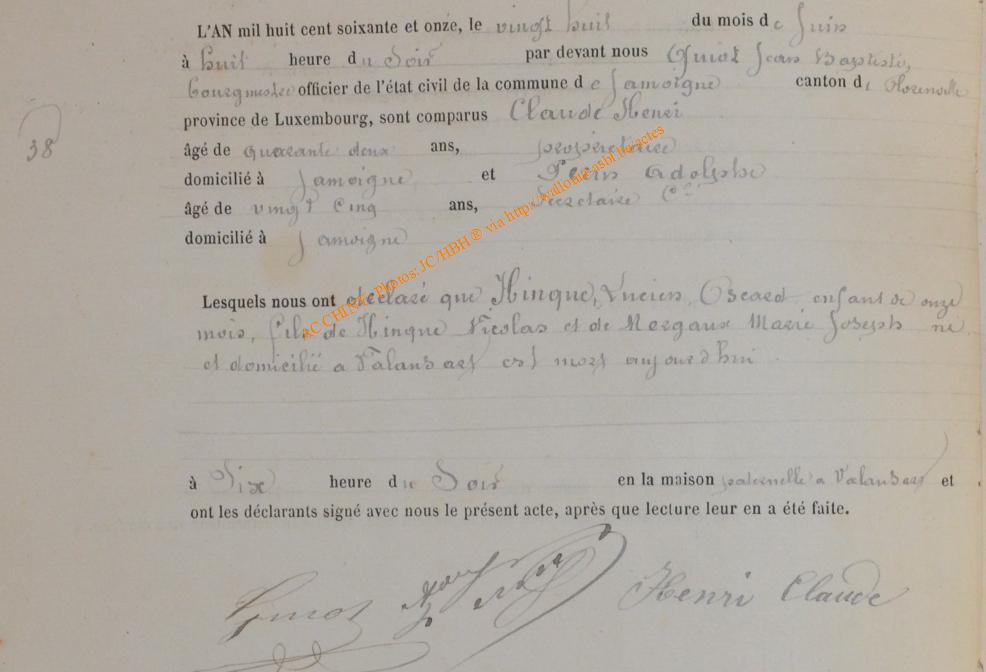 L'AN mil huit cent soixante et onze, le vingt huit du mois de Juin
à huit heure du Soir par devant nous Guiot Jean Baptiste,
bourgmestre officier de l'état civil de la commune de Jamoigne canton de Florenville
province de Luxembourg, sont comparus Claude Henri
38
âgé de quarante deux ans, propriétaire
domicilié à Jamoigne et Perin Adolphe
âgé de vingt Cinq ans, Secrétaire Cal
domicilié à Jamoigne
AC CHINY Photos: JC/HBH ® via http://wallonia-asbl.be/actes
Lesquels nous ont déclaré que Hinque, Lucien, Oscard enfant de onze
mois, fils de Hinque Nicolas et de Morgaux Marie Joseph né
et domicilié a Valansart est mort aujourd'hui
à Six heure du Soir en la maison paternelle a Valansart et
ont les déclarants signé avec nous le présent acte, après que lecture leur en a été faite.
Guiot Henri Claude